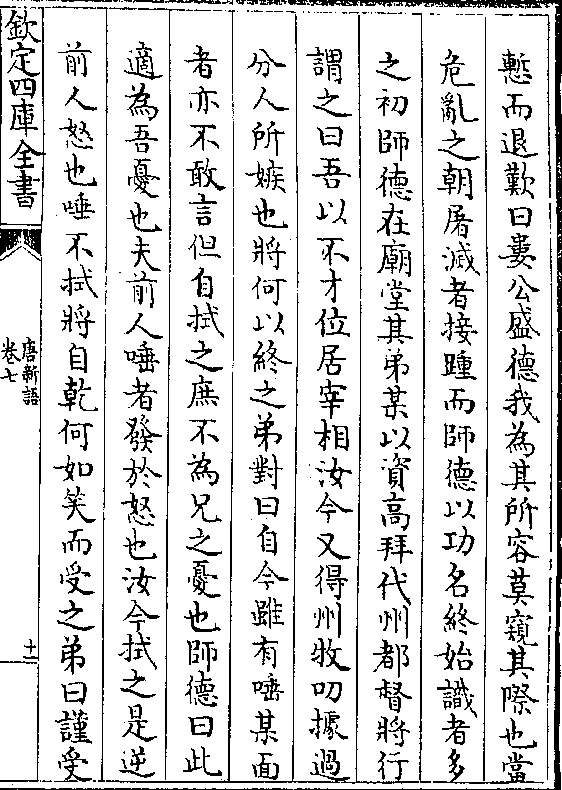 慙而退歎曰婁公盛德我為其所容莫窺其際也當
危亂之朝屠滅者接踵而師德以功名終始識者多
之初師德在廟堂其弟某以資高拜代州都督將行
謂之曰吾以不才位居宰相汝今又得州牧叨據過
分人所嫉也將何以終之弟對曰自今雖有唾某面
者亦不敢言但自拭之庶不為兄之憂也師德曰此
適為吾憂也夫前人唾者發於怒也汝今拭之是逆
前人怒也唾不拭將自乾何如笑而受之弟曰謹受
欽定四庫全書
唐新語
卷七
十二